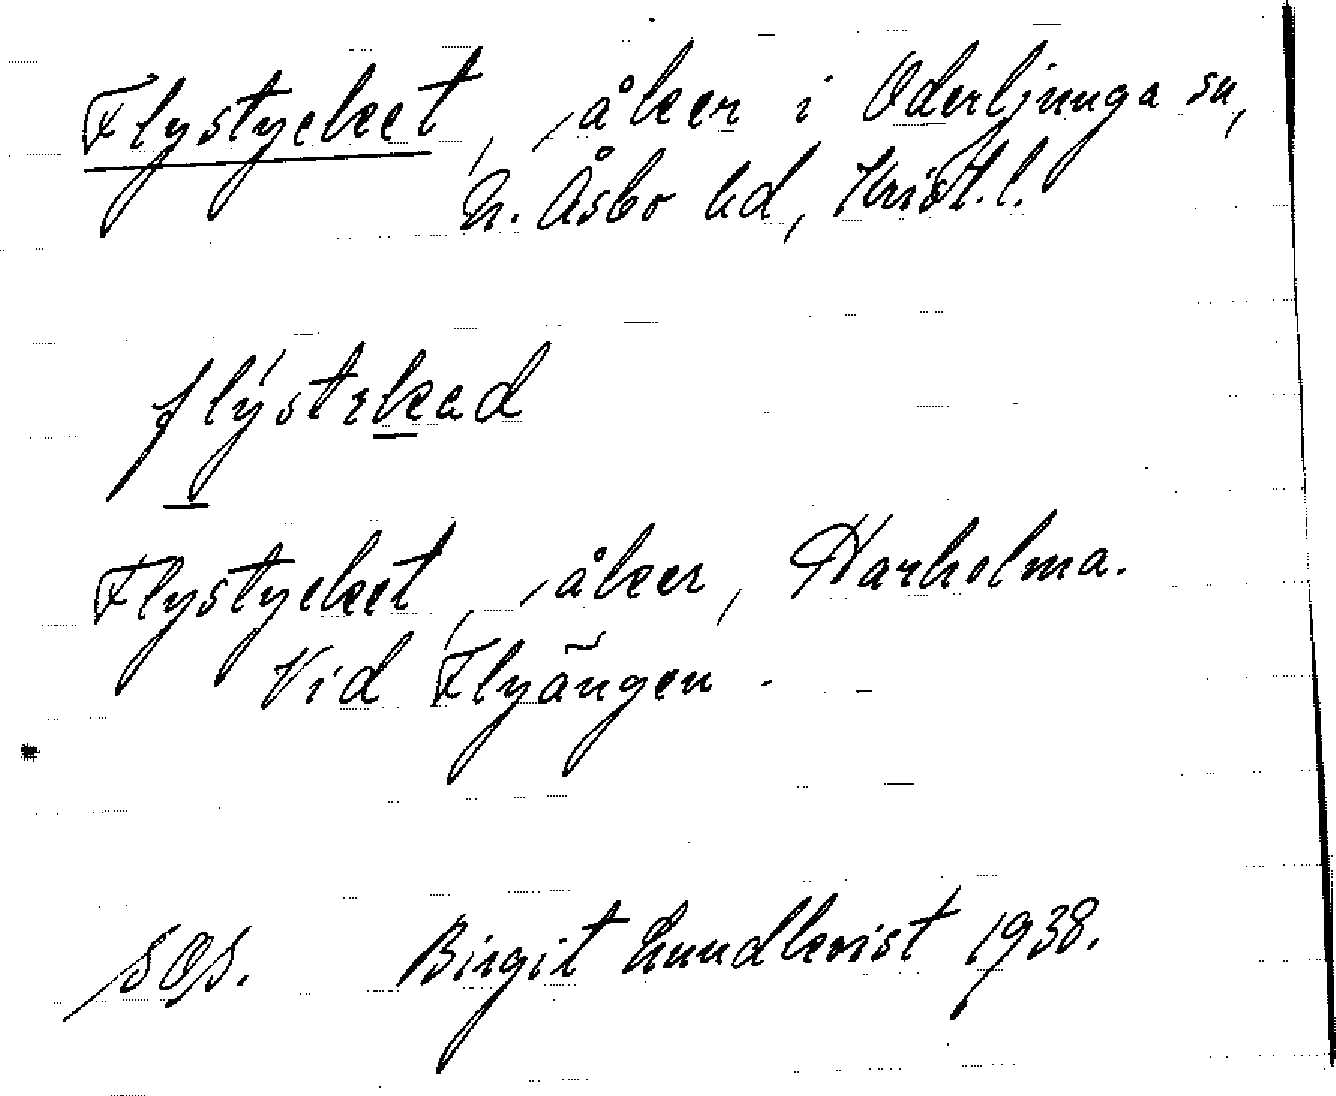 Flystycket, åker i Oderljunga sn,
N. Åsbo hd, Krist.l.
flýstekad
Flystycket, åker, Harholma.
Vid Flyängen.
SOS. Birgit Lundkvist 1938.